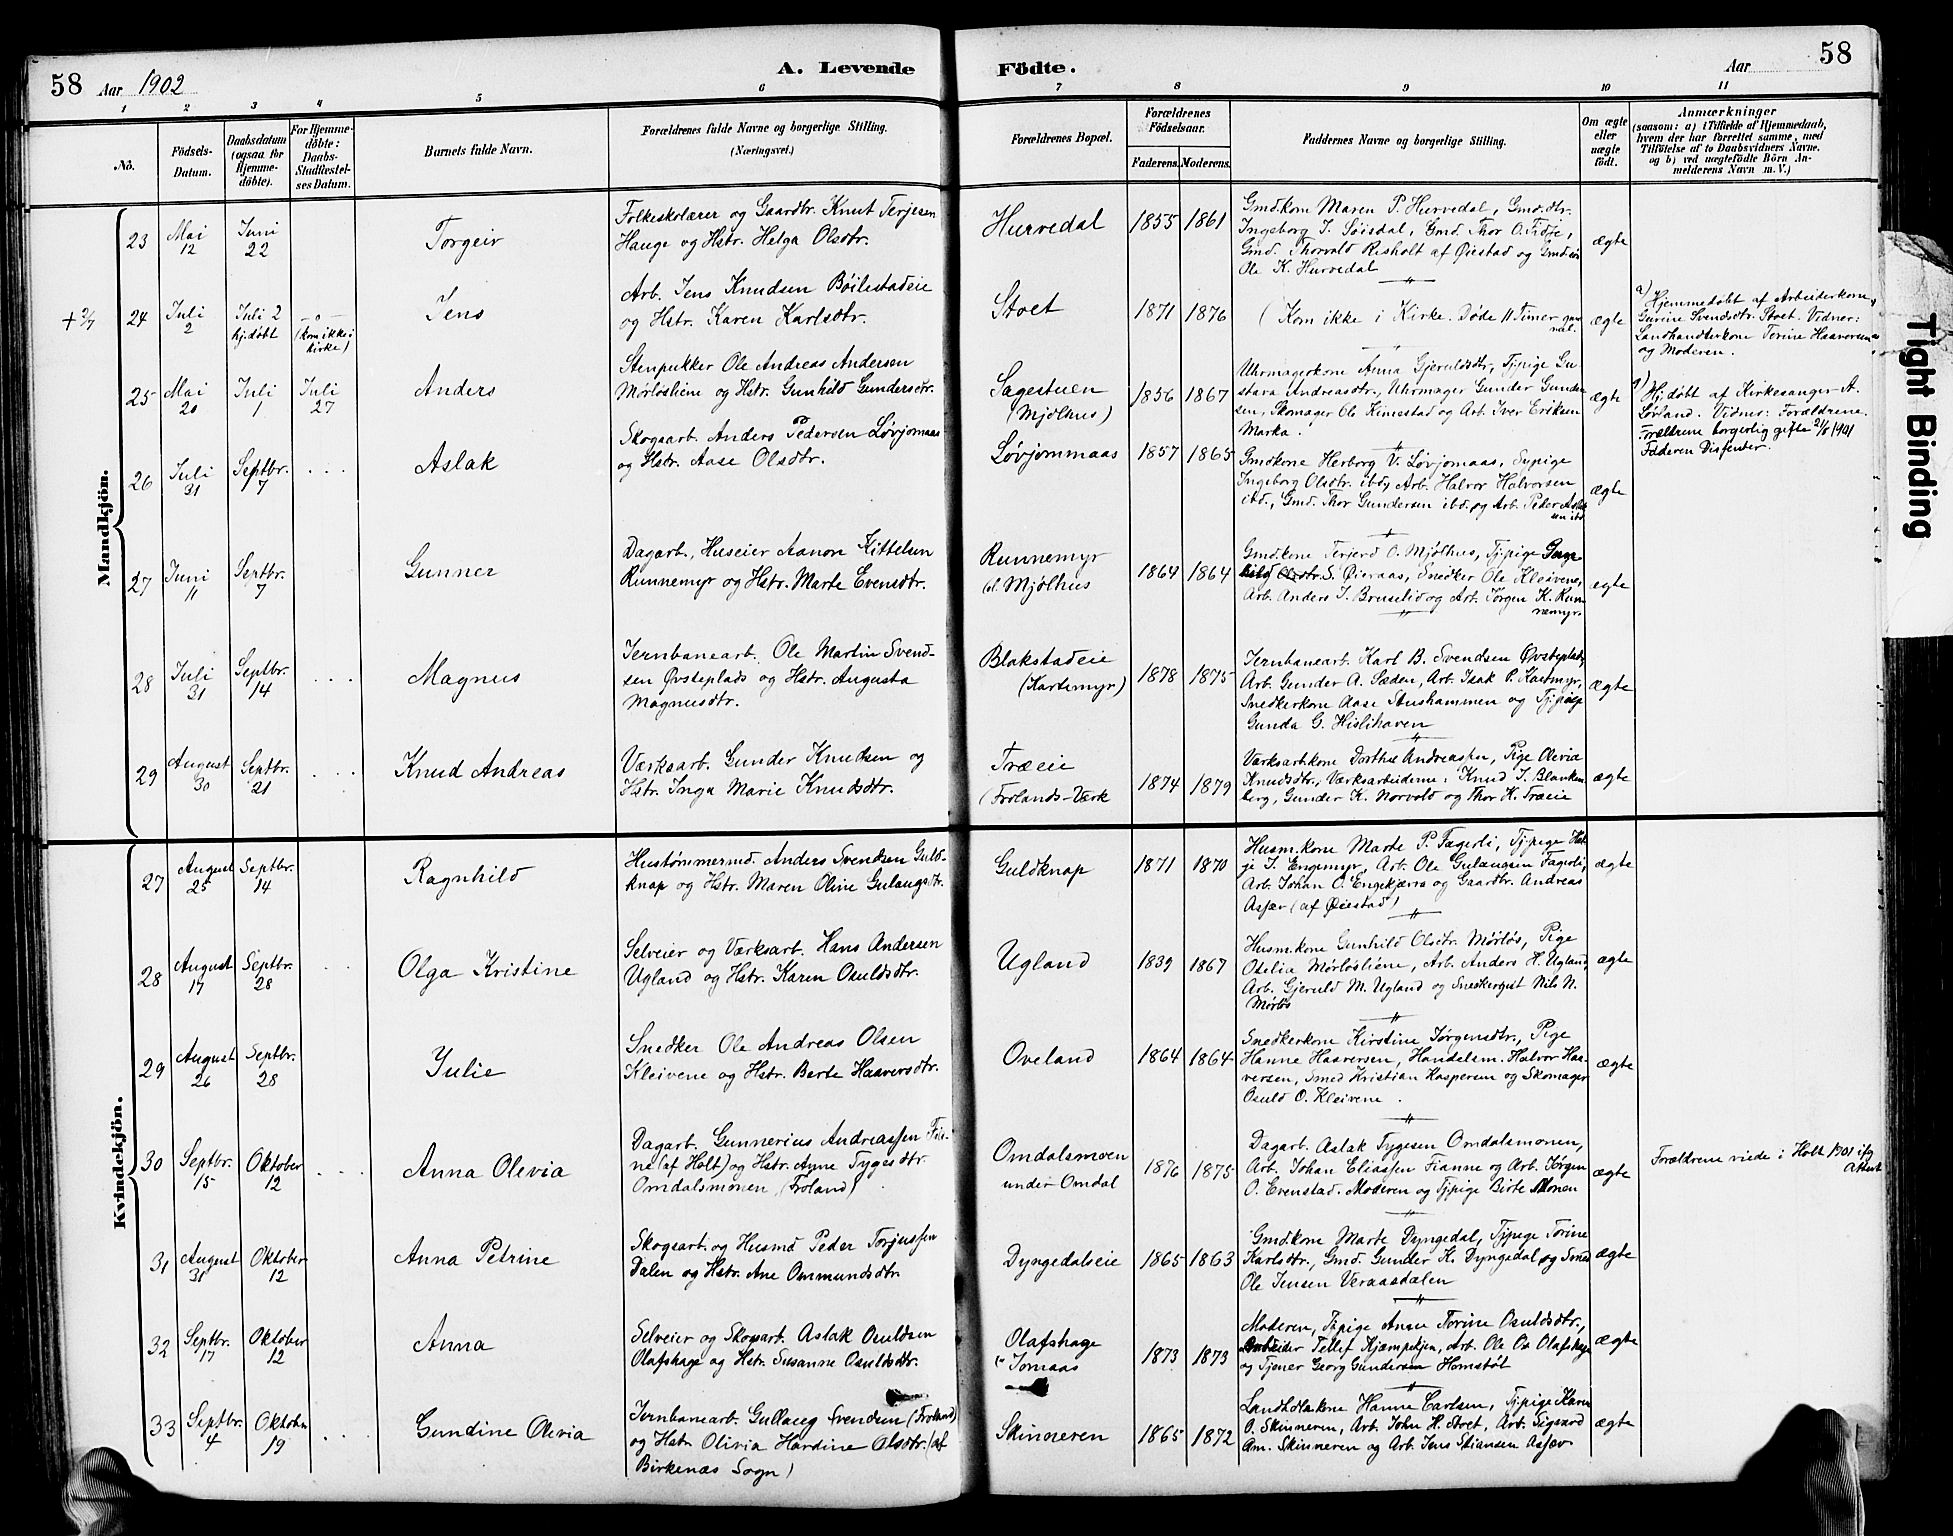 58 Aar 1902 A. Levende Födte. Aar 58
1 2 3 4 5 6 7 8 9 10 11
No.
Födsels-Datum.
Daabsdatum (ogsaa for Hjemme-döbte).
For Hjemme-döbte: Daabs-Stadfæstel-ses Datum.
Barnets fulde Navn.
Forældrenes fulde Navne og borgerlige Stilling.
(Næringsvei.)
Forældrenes Bopæl.
Forældrenes Födselsaar.
Faderens. Moderens.
Faddernes Navne og borgerlige Stilling.
Om ægte eller uægte födt.
Anmærkninger
(saasom: a) i Tilfælde af Hjemmedaab,
hvem der har forrettet samme, med
Tilföielse af to Daabsvidners Navne.
og b) ved uægtefödte Börn An-
melderens Navn m. V.)
Mandkjön.
23 Mai 12 Juni 22 Torgeir
Folkeskolærer og Gaardbr. Knut Terjesen
Hauge og Hstr. Helga Olsdtr.
Hurvedal 1855 1861
Gmd.kone Maren P. Hurvedal, Gmd.dtr.
Ingeborg T. Søisdal, Gmd. Thor O. Tidje,
Gmd. Thorvald Risholt af Øiestad og Gmd.
Ole K. Hurvedal
ægte
+ 2/7 24 Juli 2 Juli 2 hj.døbt - o - (kom ikke i kirke) Jens
Arb. Jens Knudsen Böilestadeie
og Hstr. Karen Karlsdtr.
Stoet 1871 1876
(Kom ikke i Kirke. Døde 11 Timer gammal.
ægte
a) Hjemmedøbt af Arbeiderkone
Gurine Svendsdtr. Stoet. Vidner:
Landhandlerkone Torine Haavorsen
og Moderen.
25 Mai 20 Juli 1 Juli 27 Anders
Stenpukker Ole Andreas Andersen
Mørløsliene og Hstr. Gunhild Gundersdtr.
Sagestuen
(Mjølhus)
1856 1867
Uhrmagerkone Anna Gjeruldsdtr, Tj.pige Gu-
stava Andreasdtr, Uhrmager Gunder Gunder-
sen, Skomager Ole Kinestad og Arb. Iver Eriksen
Marka.
ægte
a) Hj.døbt af Kirkesanger A.
Lørland. Vidner: Forældrene.
Forældrene borgerlig gifte 21/8 1901
Faderen Dissenter.
26 Juli 31 Septbr. 7 Aslak
Skogsarb. Anders Pedersen Løvjomaas
og Hstr. Aase Olsdtr.
Løvjommaas 1857 1865
Gmd.kone Herborg V. Løvjomaas, Sypige
Ingeborg Olsdtr. ibd, Arb. Halvor Halvorsen
ibd., Gmd. Thor Gundersen ibd. og Arb. Peder Aslaksen ibd.
ægte
27 Juni 11 Septbr. 7 Gunner
Dagarb., Huseier Aanon Kittelsen
Runnemyr og Hstr. Marte Evensdtr.
Runnemyr
Mjølhus
1864 1864
Gmd.kone Terjerd O. Mjølhus, Tj.pige
S. Øieraas, Snedker Ole Kleivene,
Arb. Anders J. Bruselid og Arb. Jørgen K. Runnemyr.
ægte
28 Juli 31 Septbr. 14 Magnus
Jernbanearb. Ole Martin Svend-
sen Øvsteplads og Hstr. Augusta
Magnusdtr.
Blakstadeie
(Kartemyr)
1878 1875
Jernbanearb. Karl B. Svendsen Øvsteplads,
Arb. Gunder A. Sæden, Arb. Isak P. Kartmyr,
Snedkerkone Aase Stenshammen og Tj.pige
Gunda G. Hislihaven
ægte
29 August 30 Septbr. 21 Knud Andreas
Værksarb. Gunder Knudsen og
Hstr. Inga Marie Knudsdtr.
Træeie
(Frolands-Værk
1874 1879
Værksarb.kone Dorthe Andreassen, Pige Olevia
Knudsdtr, Værksarbeiderne: Knud J. Blanken-
berg, Gunder K. Norvold og Thor K. Træeie
ægte
Kvindekjön.
27 August 25 Septbr. 14 Ragnhild
Hustømmermd. Anders Svendsen Guld-
knap og Hstr. Maren Oline Gulaugsdtr.
Guldknap 1871 1870
Husm.kone Marte P. Fagerli, Tj.pige Hel-
je J. Engemyr, Arb. Ole Gulaugsen Fagerli,
Arb. Johan O. Engekjærra og Gaardbr. Andreas
Asfær (af Øiestad)
ægte
28 August 17 Septbr. 28 Olga Kristine
Selveier og Værksarb. Hans Andersen
Ugland og Hstr. Karen Osuldsdtr.
Ugland 1839 1867
Husm.kone Gunhild Olsdtr. Mørløs, Pige
Otelia Mørløsliene, Arb. Anders H. Ugland,
Arb. Gjeruld M. Ugland og Snedkergut Nils N.
Mørløs
ægte
29 August 26 Septbr. 28 Julie
Snedker Ole Andreas Olsen
Kleivene og Hstr. Berte Haaversdtr.
Oveland 1864 1864
Snedkerkone Kirstine Jørgensdtr., Pige
Hanne Haaversen, Handelsm. Halvor Haa-
versen, Smed Kristian Kaspersen og Skomager
Osuld O. Kleivene.
ægte
30 Septbr. 15 Oktober 12 Anna Olevia
Dagarb. Gunnerius Andreassen Fei-
ne (af Holt) og Hstr. Anne Tygesdtr
Omdalsmonen (Froland)
Omdalsmoen
under Omdal
1876 1875
Dagarb. Aslak Tygesen Omdalsmonen,
Arb. Johan Eliassen Fianne og Arb. Jørgen
O. Evenstad. Moderen og Tj.pige Birte Monen
ægte
Forældrene viede i Holt 1901 ifg Attest
31 August 31 Oktober 12 Anna Petrine
Skogsarb. og Husmd Peder Torjussen
Dalen og Hstr. Ane Ommundsdtr.
Dyngedalseie 1865 1863
Gmd.kone Marte Dyngedal, Tj.pige Torine
Karlsdtr, Gmd. Gunder K. Dyngedal og Smed
Ole Jensen Veraasdalen
ægte
32 Septbr. 17 Oktober 12 Anna
Selveier og Skogsarb. Aslak Osuldsen
Olafshage og Hstr. Susanne Osuldsdtr.
Olafshage
Jomaas
1873 1873
Moderen, Tj.pige Anne Torine Osuldsdtr.,
Arbeider Tellef Kjæmpekjen, Arb. Ole Os Olafshage
og Tjener Georg Gundersen Homstøl
ægte
33 Septbr. 4 Oktober 19 Gundine Olevia
Jernbanearb. Gullaug Svendsen (Froland)
og Hstr Olivia Hardine Olsdtr. (af
Birkenæs Sogn)
Skinneren 1865 1872
Landhdl.kone Hanne Carlsen, Tj.pige Karen
O. Skinneren, Arb. John H. Aret, Arb. Sigvard
Am. Skinneren og Arb. Jens Stiansen Asfær
ægte
Tight Binding